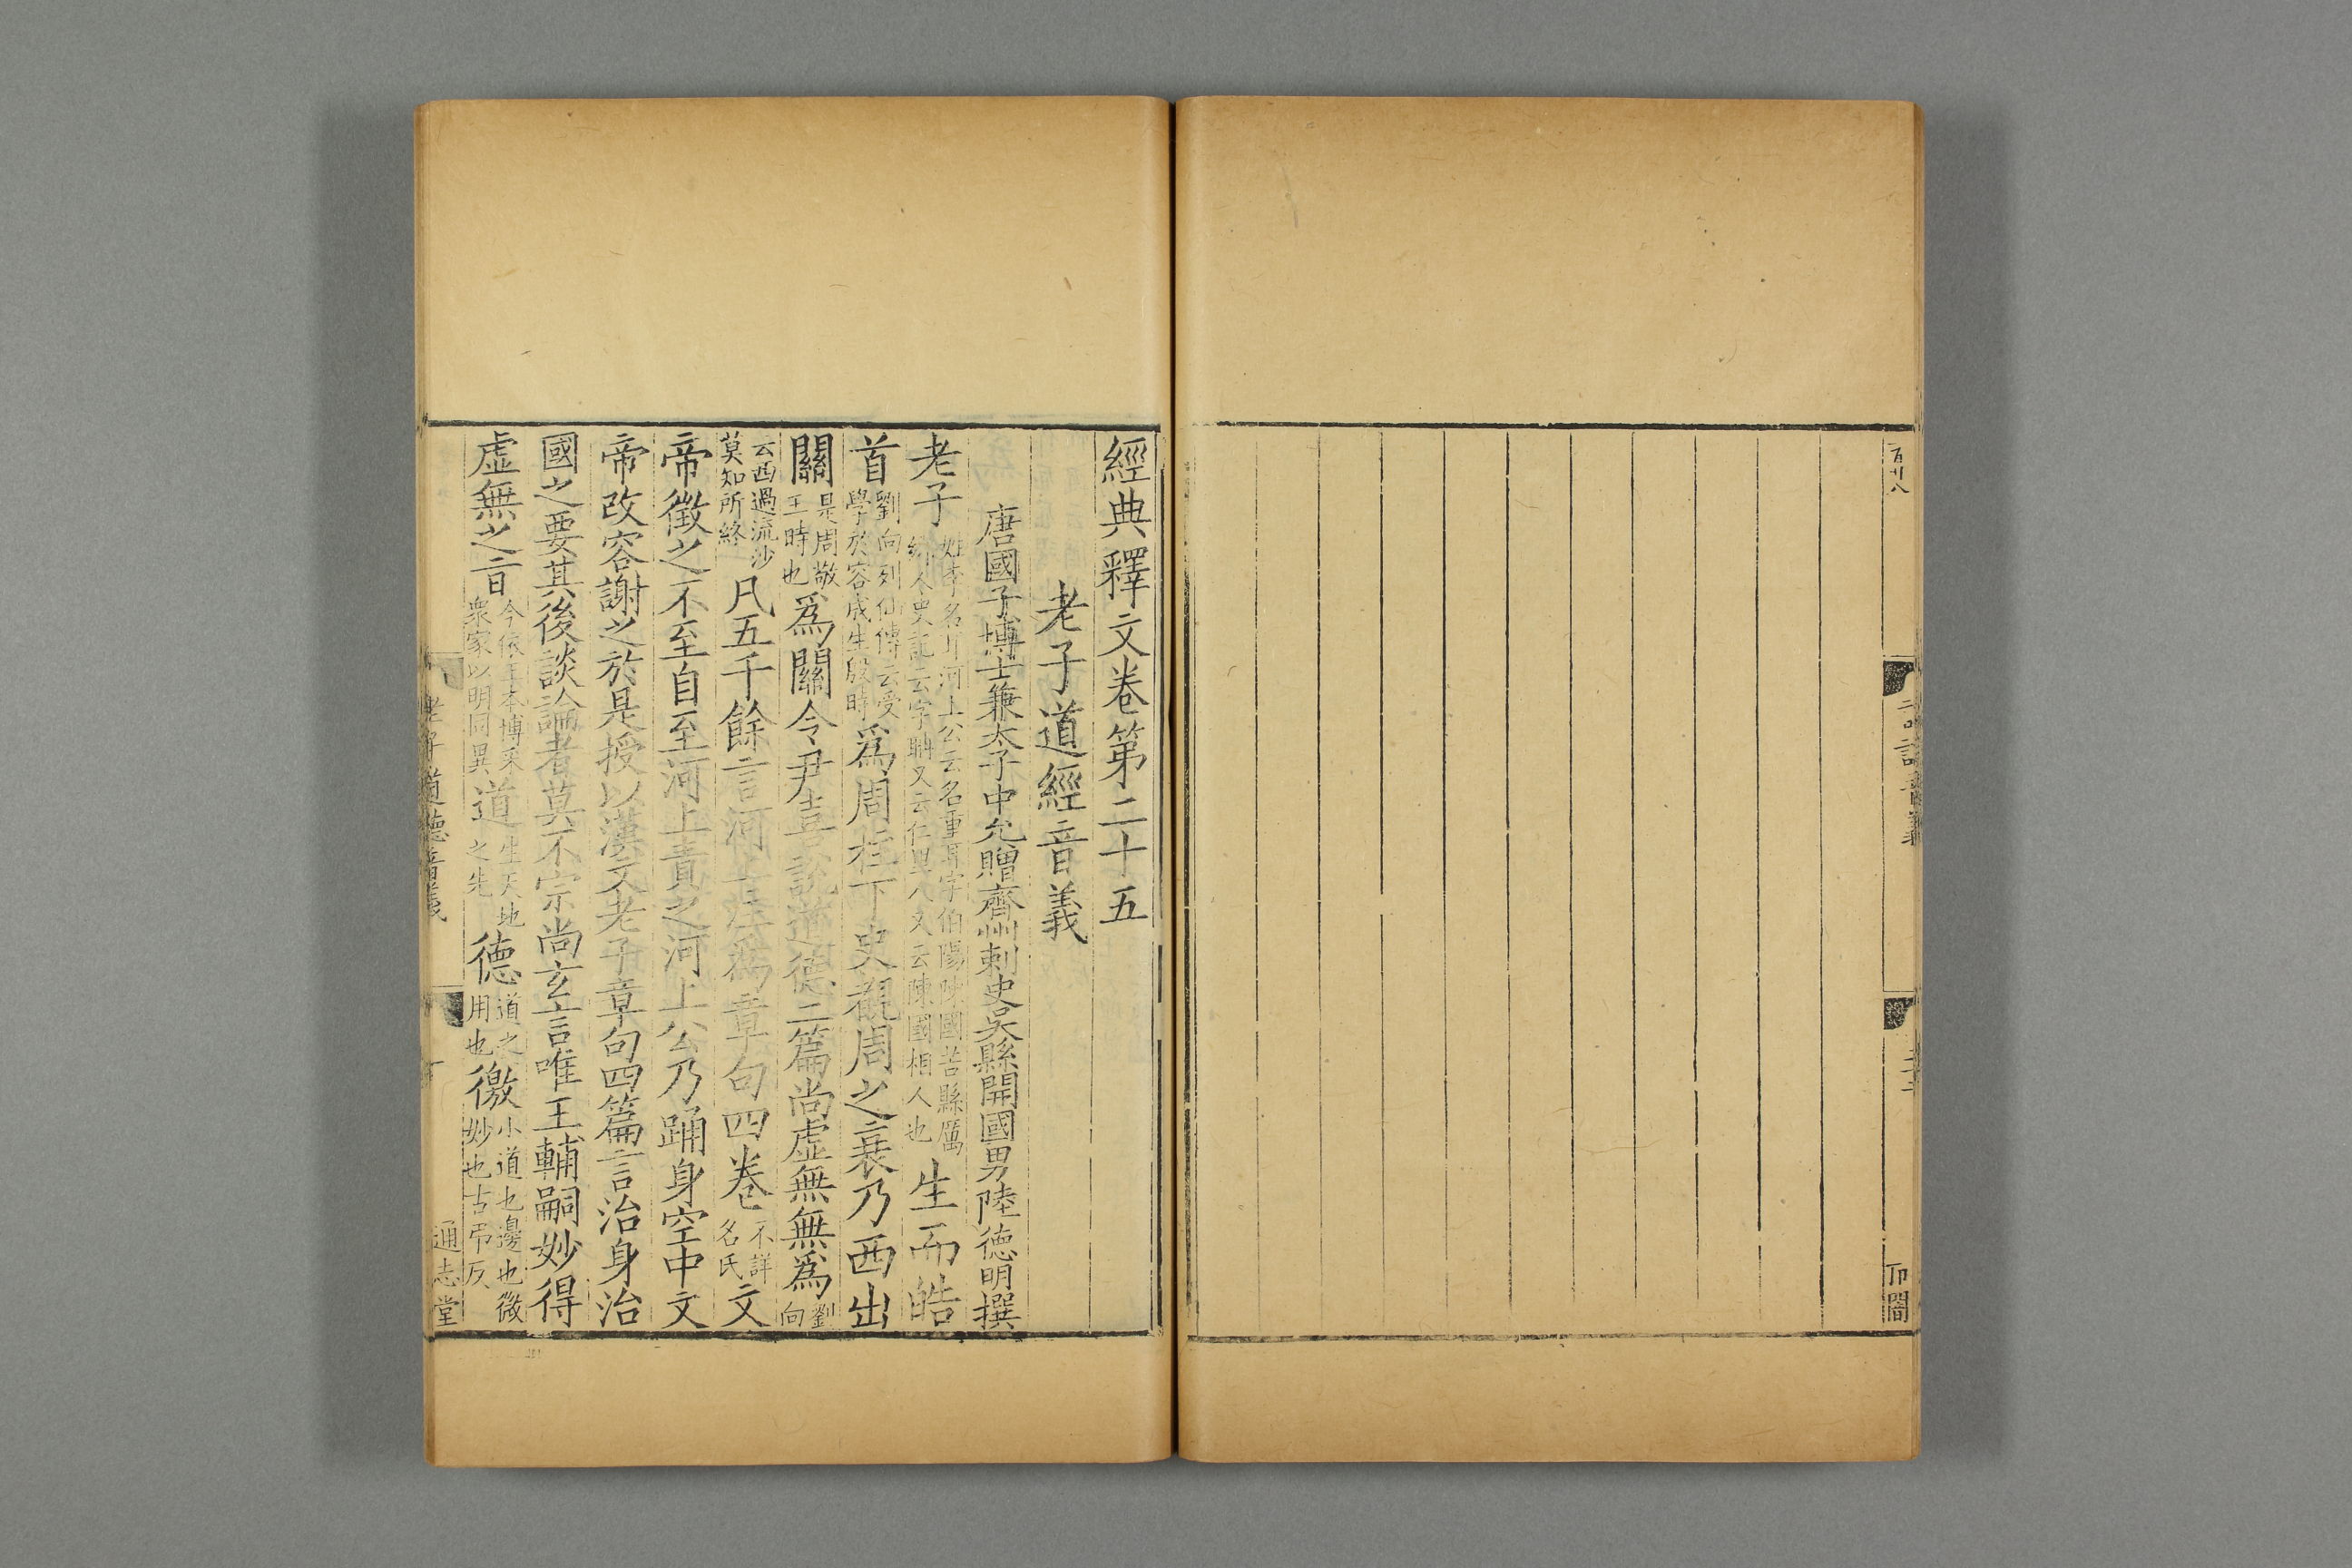 百卅八
音義
二十二
經典釋文卷第二十五
老子道經音義
唐國子博士兼太子中允贈齊州刺史吳縣開國男陸德明撰
老子姓李名耳河上公云名重耳字伯陽陳國苦縣厲鄉人史記云字聃又云仁里人又云陳國相人也生而皓
首劉向列仙傳云受學於容成生殷時爲周柱下史覩周之衰乃西出
關是周敬王時也爲關令尹喜說道德二篇尚虛無無爲劉向
云西過流沙莫知所終凡五千餘言河上公爲章句四卷不詳名氏文
帝徵之不至自至河上責之河上公乃踊身空中文
帝改容謝之於是授以漢文老子章句四篇言治身治
國之要其後談論者莫不宗尚玄言唯王輔嗣妙得
虛無之旨今依王本博采衆家以明同異道生天地之先德道之用也徼小道也邊也微妙也古弔反
老子道德音義
一
通志堂